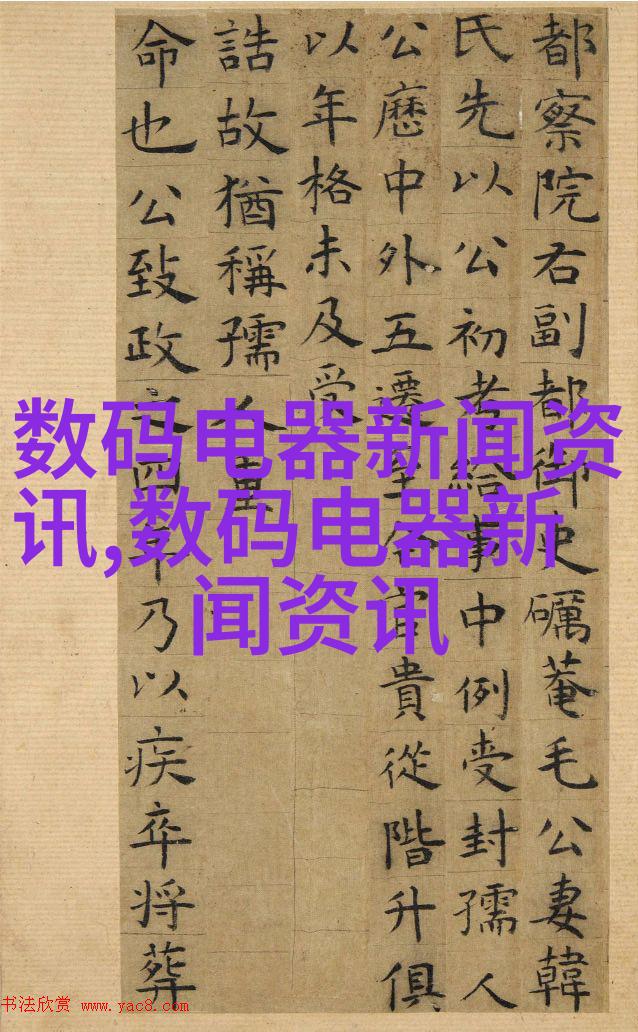 都察院右副都御史礪菴毛公妻韓
氏先以公初考給事中例受封孺人
公歷中外五遷至今官貴從階升俱
以年格未及受
誥故猶稱孺人重
命也公致政之四年乃以疾卒将葬
数码电器新闻资
讯,数码电器新
闻资讯
书法欣赏 www.yac8.com